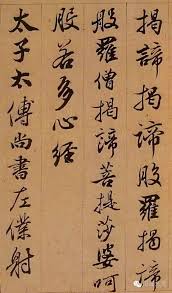 揭諦揭諦般羅揭諦
般羅僧揭諦菩提莎婆呵
般若多心經
太子太傅尚書左僕射